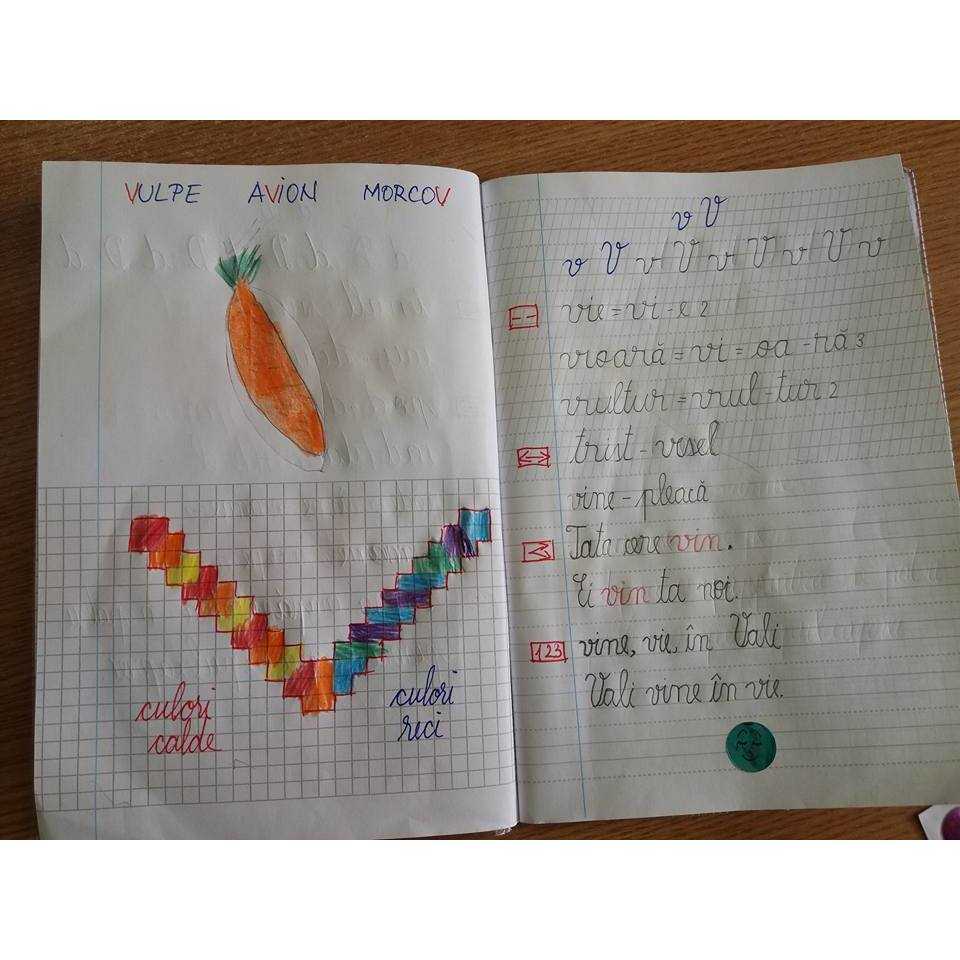 VULPE AVION MORCOV
culori
calde
culori
reci
v V
v V v V v V v V v
vie = vi - e 2
vioară = vi = oa - ră 3
vultur = vul - tur 2
trist - vesel
vine - pleacă
Tata cere vin.
Ei vin la noi.
123 vine, vie, în Vali
Vali vine în vie.